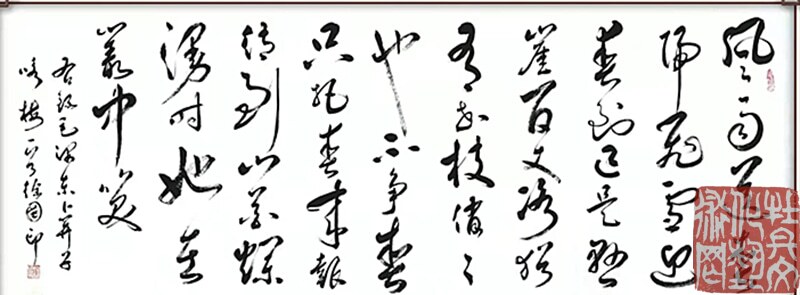 风雨送春
归飞雪迎
春到已是悬
崖百丈冰犹
有花枝俏々
也不争春
只把春来报
待到山花烂
漫时她在
丛中笑
右录毛泽东卜算子
咏梅 徐国印